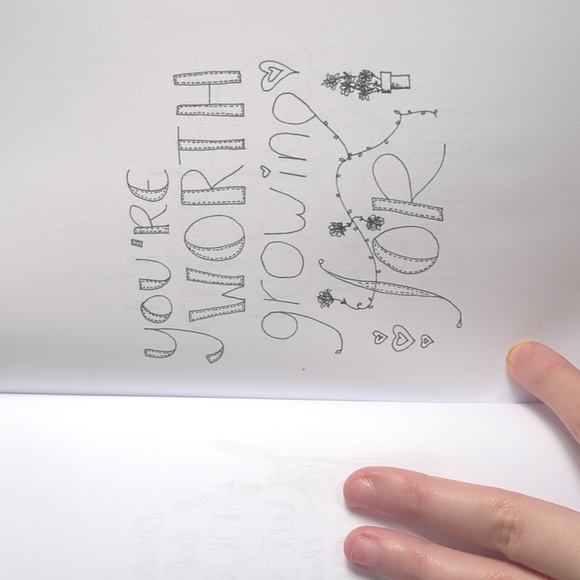 you're
WORTH
growing
for